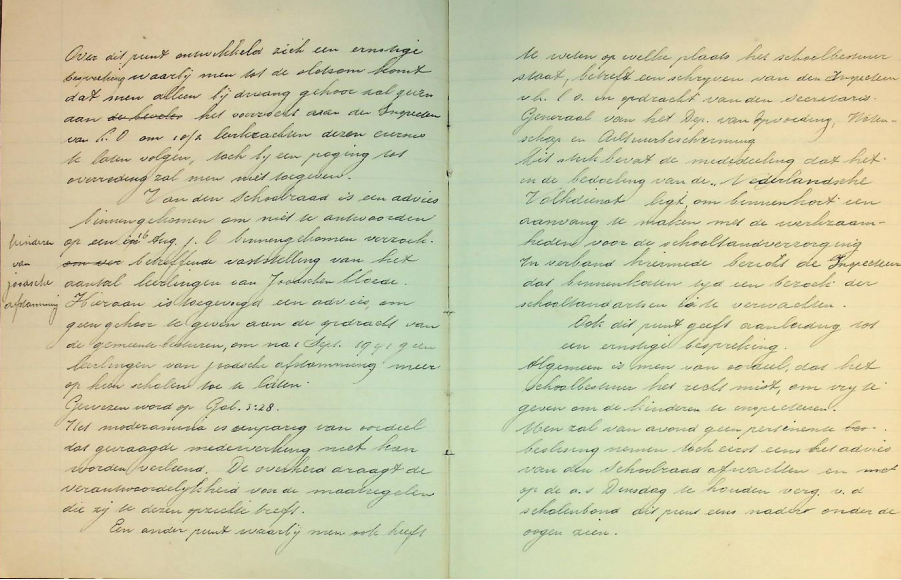 Over dit punt ontwikkeld zich een ernstige
bespreking waarbij men tot de slotsom komt
dat men alleen bij dwang gehoor zal geven
aan de bevelen het voorzoek aan den Inspecteur
van L.O om 1 of 2 leerkrachten dezen cursus
te laten volgen, toch bij een poging tot
overreding zal men niet toegeven.
Van den Schoolraad is een advies
binnengekomen om niet te antwoorden
op een in Aug. j.l. binnengekomen verzoek
betreffende vaststelling van het
aantal leerlingen van Joodschen bloede.
Hieraan is toegevoegd een advies, om
geen gehoor te geven aan de opdracht van
de gemeente besturen, om na 1 Sept. 1941 geen
leerlingen van joodsche afstamming meer
op hun scholen toe te laten.
Gewezen word op Gal. 3:28.
Het moderamina is eenparig van oordeel
dat gevraagde medewerking niet kan
worden verleend. De overheid draagt de
verantwoordelijkheid voor de maatregelen
die zij te dezen opzichte treft.
Een ander punt waarbij men ook heeft
kinderen
van
joodsche
afstamming
te weten op welke plaats het schoolbestuur
staat, betreft een schrijven van den Inspecteur
v.h. l.o. in opdracht van den Secretaris-
Generaal van het Dep. van Opvoeding, Weten-
schap en Cultuurbescherming
Dit stuk bevat de mededeeling dat het
in de bedoeling van de "Nederlandsche
Volksdienst ligt, om binnenkort een
aanvang te maken met de werkzaam-
heden voor de schooltandverzorging
In verband hiermede bericht de Inspecteur
dat binnenkorten tijd een bezoek der
schooltandartsen is te verwachten.
Ook dit punt geeft aanleiding tot
een ernstige bespreking.
Algemeen is men van oordeel, dat het
Schoolbestuur het recht mist, om vrij te
geven om de kinderen te inspecteeren.
Men zal van avond geen
beslissing nemen toch eerst eens het advies
van den Schoolraad afwachten en
op de a.s Dinsdag te houden verg. v.d
scholenbond dit punt eens nader onder de
oogen zien.